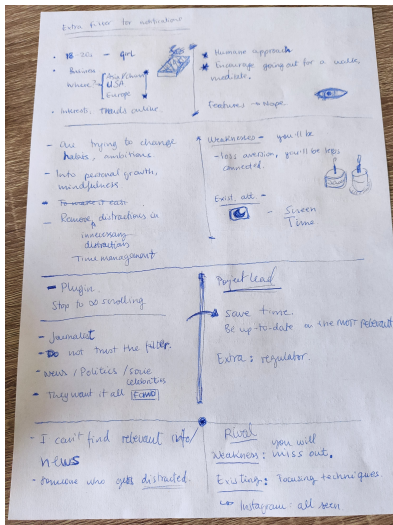 Extra filter for notifications
• 18-20s - girl
• Business
Where?
Asia/China
USA
Europe
• Interests, Trends online.
* Humane approach.
* Encourage going out for a walk,
meditate.
Features → Hope
- Are trying to change
habits, ambitions
- Into personal growth,
mindfulness
- To make it easy
- Remove distractions in
unnecessary
distractions
Time management
Weaknesses - you'll be
- loss aversion, you'll be less
connected.
Exist. alt. -
- Screen
Time
- Plugin.
Stop to ∞ scrolling
- Journalist
- Do not trust the filter.
- News / Politics / some
celebrities
- They want it all FOMO
Project Lead
→ save time.
Be up-to-date on the most relevant
Extra: regulator.
- I can't find relevant info/
news
- Someone who gets distracted.
Rival
Weakness: you will
miss out.
Existing: Focusing techniques
↳ Instagram: all seen